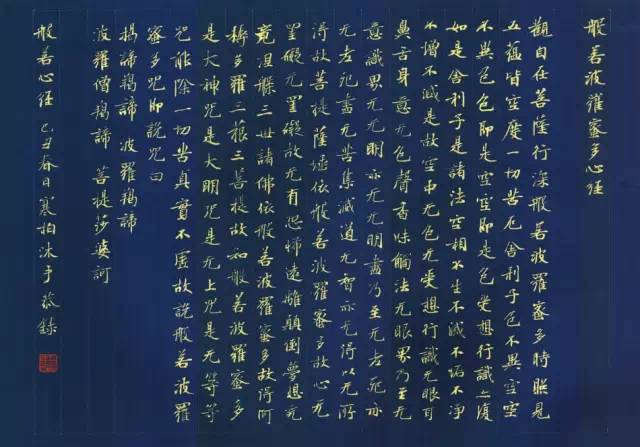 般若波羅蜜多心経
觀自在菩薩行深般若波羅蜜多時照見
五蘊皆空度一切苦厄舍利子色不異空空
不異色色即是空空即是色受想行識亦復
如是舍利子是諸法空相不生不滅不垢不淨
不增不減是故空中无色无受想行識无眼耳
鼻舌身意无色聲香味觸法无眼界乃至无
意識界无无明亦无无明盡乃至无老死亦
无老死盡无苦集滅道无智亦无得以无所
得故菩提薩埵依般若波羅蜜多故心无
罣礙无罣礙故无有恐怖遠離顛倒夢想究
竟涅槃三世諸佛依般若波羅蜜多故得阿
耨多羅三藐三菩提故知般若波羅蜜多
是大神咒是大明咒是无上咒是无等等
咒能除一切苦真實不虛故說般若波羅
蜜多咒即說咒曰
揭諦揭諦 波羅揭諦
波羅僧揭諦 菩提莎婆訶
般若心経 己丑春日寒柏沐手敬錄